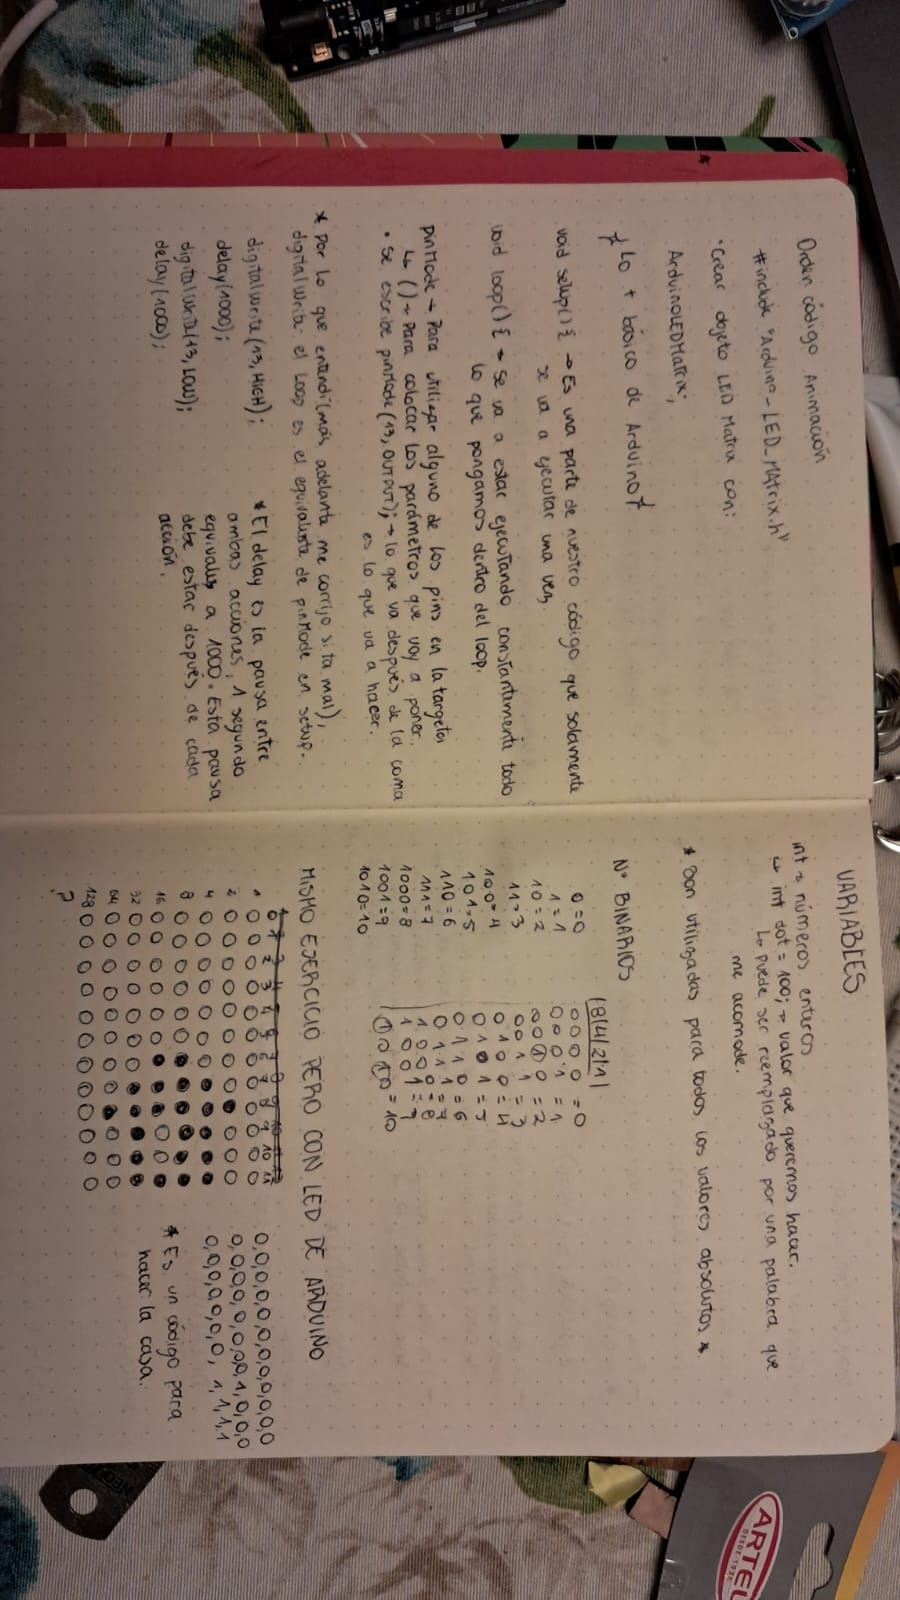 Orden código Animación
#include "Arduino_LED_Matrix.h"
*Crear objeto LED Matrix con:
ArduinoLEDMatrix;
* Lo + básico de Arduino *
void setup() { → Es una parte de nuestro código que solamente
se va a ejecutar una vez.
void loop() { → Se va a estar ejecutando constantemente todo
lo que pongamos dentro del loop.
pinMode → Para utilizar alguno de los pins en la targeta
↳ () → Para colocar los parámetros que voy a poner.
• Se escribe pinMode(13, OUTPUT); → lo que va después de la coma
es lo que va a hacer.
* Por lo que entendí (más adelante me corrijo si ta mal),
digitalWrite: el Loop es el equivalente de pinMode en setup.
digitalWrite(13, HIGH);
delay(1000);
digitalWrite(13, LOW);
delay(1000);
* El delay es la pausa entre
ambas acciones, 1 segundo
equivale a 1000. Esta pausa
debe estar después de cada
acción.
VARIABLES
int = números enteros
↳ int dot = 100; → valor que queremos hacer.
↳ puede ser reemplazado por una palabra que
me acomode.
* Son utilizadas para todos los valores absolutos *
Nº BINARIOS
0=0
1=1
10=2
11=3
100=4
101=5
110=6
111=7
1000=8
1001=9
1010=10
|8|4|2|1|
0 0 0 0 = 0
0 0 0 1 = 1
0 0 1 0 = 2
0 0 1 1 = 3
0 1 0 0 = 4
0 1 0 1 = 5
0 1 1 0 = 6
0 1 1 1 = 7
1 0 0 0 = 8
1 0 0 1 = 9
1 0 1 0 = 10
MISMO EJERCICIO PERO CON LED DE ARDUINO
1
2
4
8
16
32
64
128
?
0,0,0,0,0,0,0,0,0,0,0,0
0,0,0,0,0,0,0,0,1,0,0,0
0,0,0,0,0,0,0,1,1,1,1
* Es un código para
hacer la casa.
ARTEL